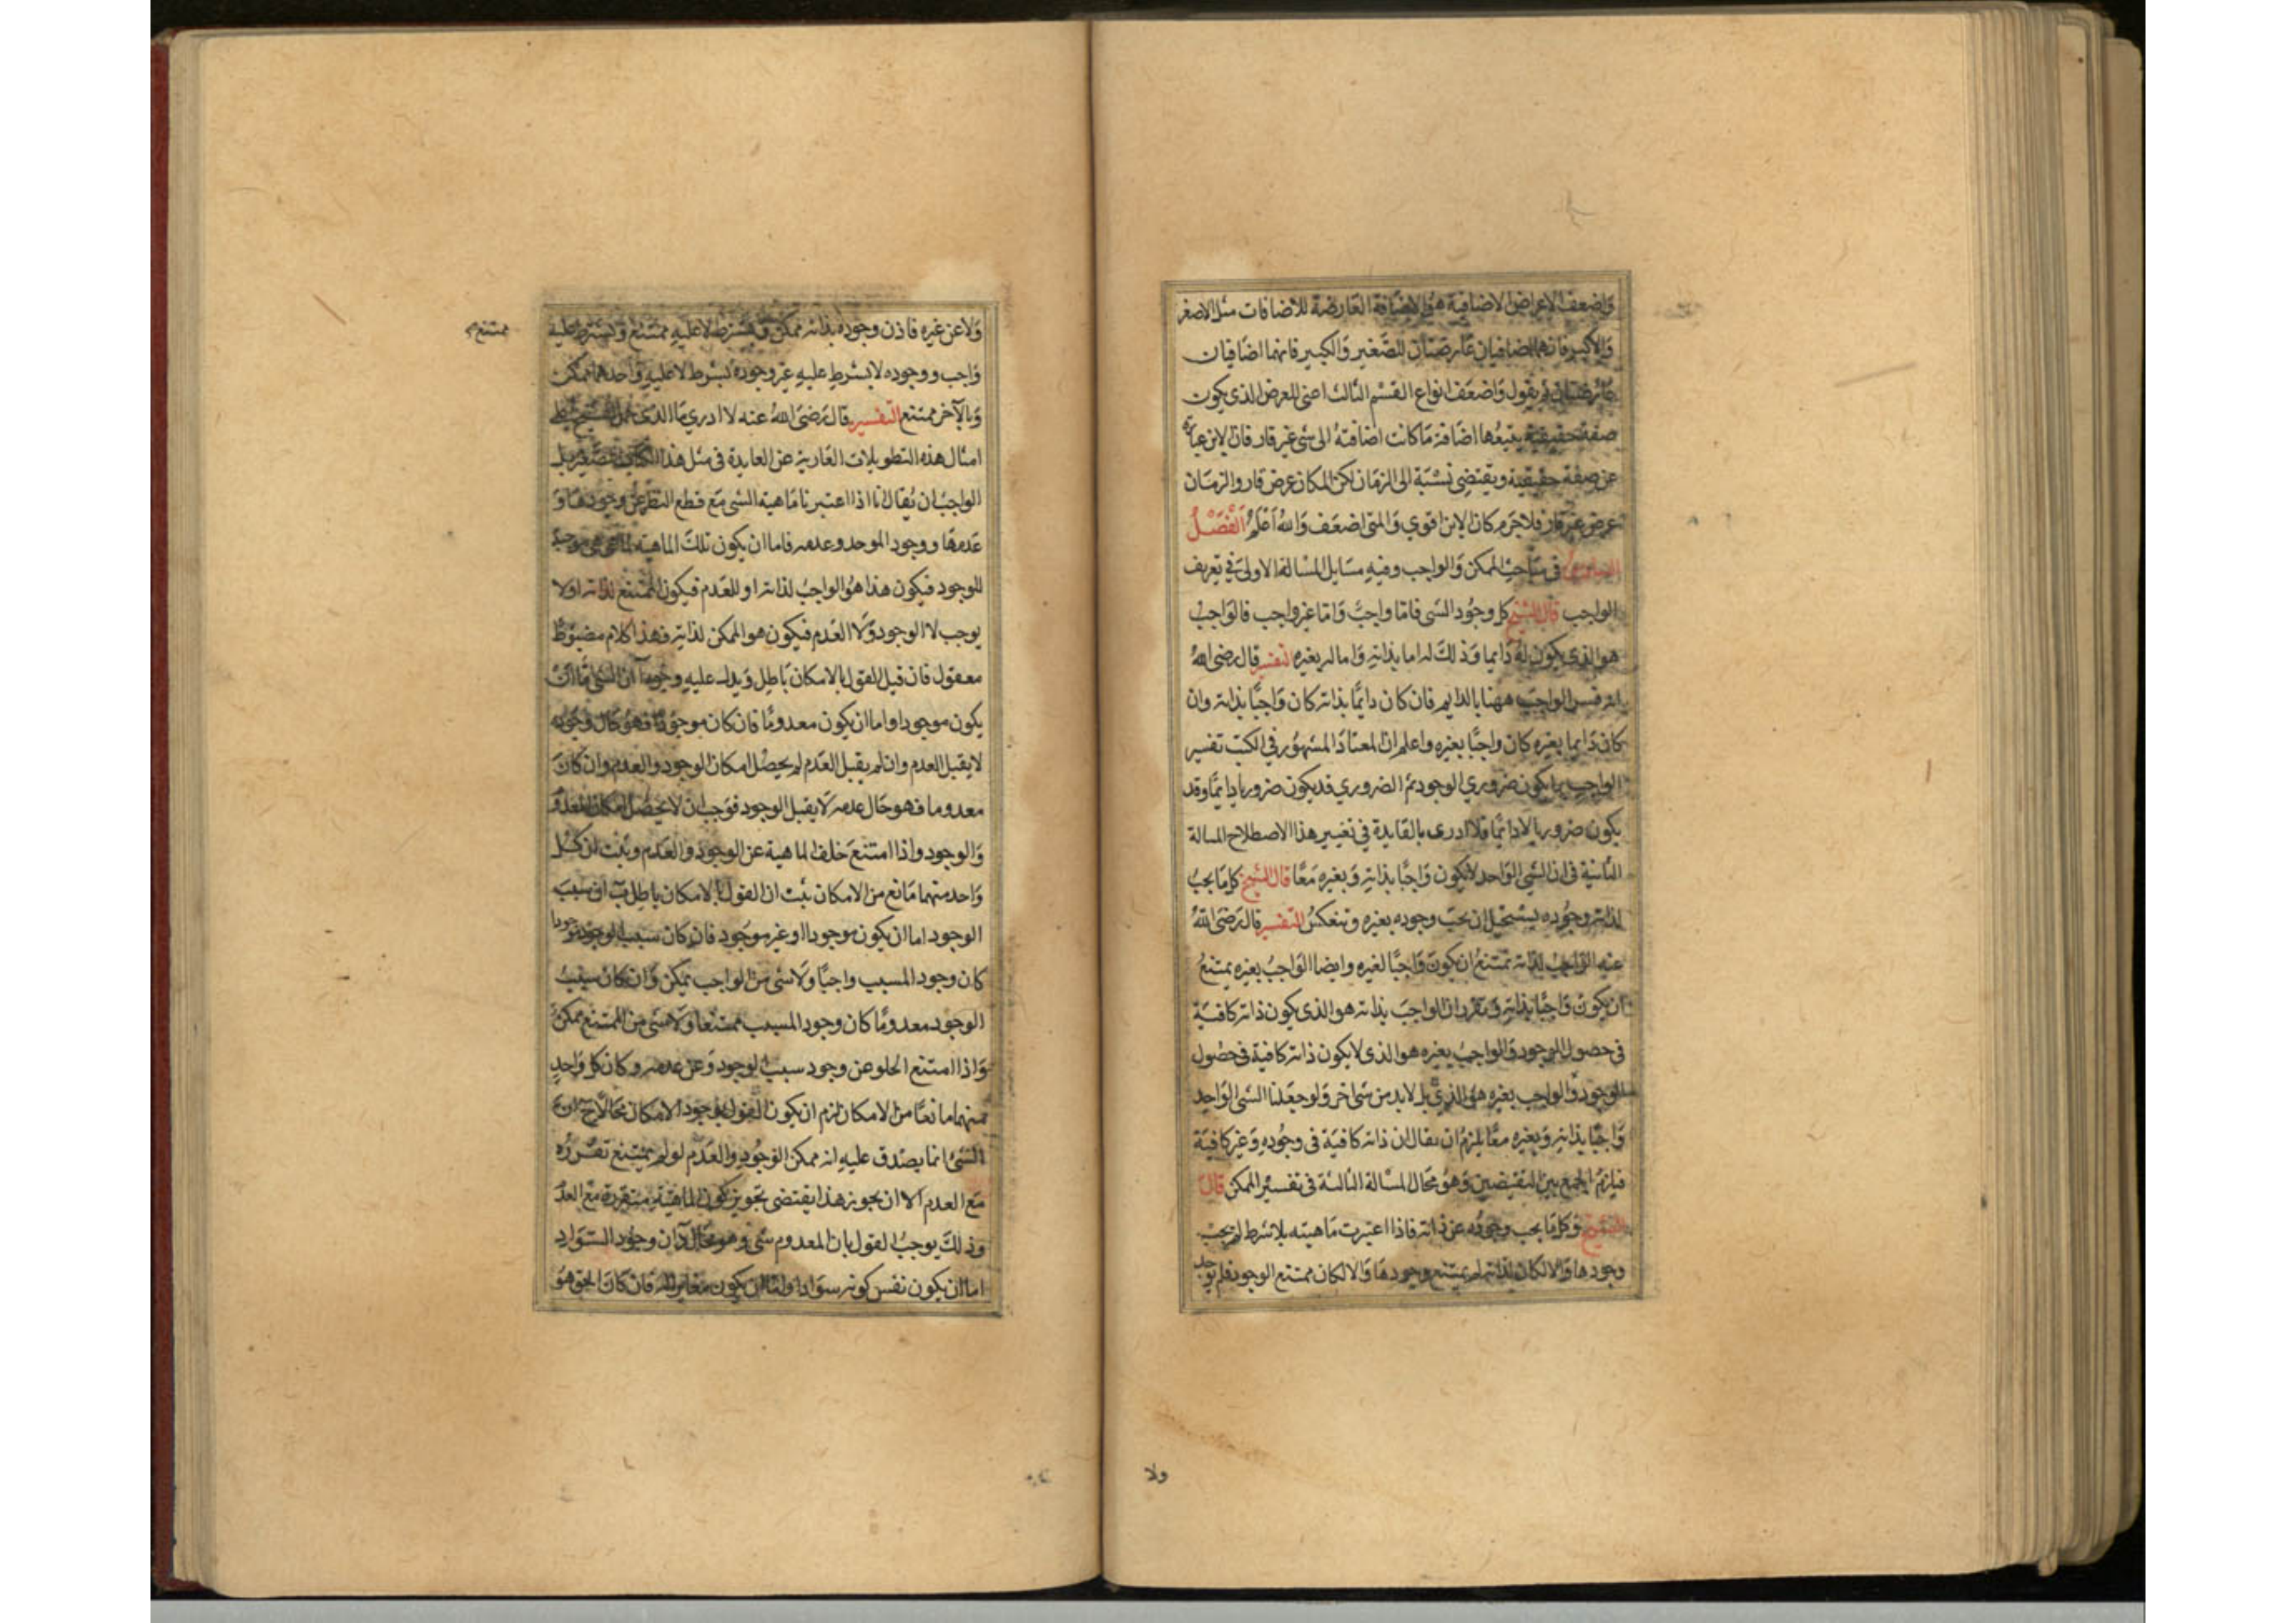 واضعف الاعراض الاضافية هو الاضافة العارضة للاضافات مثل الاصغر
والاكبر فانهما اضافيان عارضتان للصغير والكبير فانهما اضافيان
عارضتان ثم يقول واضعف انواع القسم الثالث اعنى العرض الذى يكون
صفة حقيقية يتبعها اضافة ما كانت اضافته الى شى غير قار فان الاين عبارة
عن صفة حقيقية ويقتضى نسبة الى الزمان لكن المكان عرض قار والزمان
عرض غير قار فلا جرم كان الاين اقوي والمتى اضعف والله اعلم الفصل
فى مباحث الممكن والواجب وفيه مسايل المسالة الاولى فى تعريف
الواجب قال الشيخ كل وجود الشى فاما واجب واما غير واجب فالواجب
هو الذى يكون له دايما وذلك له اما بذاته واما له بغيره التفسير قال رضى الله
فسر الواجب ههنا بالدايم فان كان دايما بذاته كان واجبا بذاته وان
كان دايما بغيره كان واجبا بغيره واعلم ان المعتاد المشهور فى الكتب تفسير
الواجب بما يكون ضروري الوجود ثم الضروري قد يكون ضروريا دايما وقد
يكون ضروريا لا دايما فلا ادرى ما الفايدة فى تغيير هذا الاصطلاح المسالة
الثانية فى ان الشى الواحد لا يكون واجبا بذاته وبغيره معا قال الشيخ كل ما يجب
لذاته وجوده يستحيل ان يجب وجوده بغيره وتنعكس التفسير قال رضى الله
عنه الواجب لذاته يمتنع ان يكون واجبا لغيره وايضا الواجب بغيره يمتنع
ان يكون واجبا بذاته وتقرر ان الواجب بذاته هو الذى يكون ذاته كافية
فى حصول الوجود والواجب بغيره هو الذى لا يكون ذاته كافية فى حصول
الوجود والواجب بغيره هو الذى بل لابد من شى اخر ولو جعلنا الشى الواحد
واجبا بذاته وبغيره معا يلزم ان يقال ان ذاته كافية فى وجوده وغير كافية
فيلزم الجمع بين النقيضين وهو محال المسالة الثالثة فى تفسير الممكن قال
الشيخ وكل ما يجب وجوده عن ذاته فاذا اعتبرت ماهيته بلا شرط لم يجب
وجودها والا لكان لذاته لم يمتنع وجودها والا لكان ممتنع الوجود فلم يوجد
ولا
ولا عن غيره فاذن وجوده بذاته ممكن وبشرط لا عليه ممتنع وبشرط عليه
ممتنع
واجب ووجوده لا بشرط عليه غير وجوده بشرط لا عليه واحدهما ممكن
وبالآخر ممتنع التفسير قال رضى الله عنه لا ادري ما الذى حمل الشيخ على
امثال هذه التطويلات العارية عن الفايدة فى مثل هذا الكتاب الصغير بل
الواجب ان يقال انا اذا اعتبرنا ماهية الشى مع قطع النظر عن وجودها و
عدمها ووجود الموجد وعدمه فاما ان يكون تلك الماهية لما هى هى موجبة
للوجود فيكون هذا هو الواجب لذاته او للعدم فيكون الممتنع لذاته او لا
يوجب لا الوجود ولا العدم فيكون هو الممكن لذاته فهذا كلام مضبوط
معقول فان قيل القول بالامكان باطل ويدل عليه وجوه آ ان الشى اما ان
يكون موجودا واما ان يكون معدوما فان كان موجودا فهو حال وجوده
لا يقبل العدم وان لم يقبل العدم لم يحصل امكان الوجود والعدم وان كان
معدوما فهو حال عدمه لا يقبل الوجود فوجب ان لا يحصل امكان العدم
والوجود واذا امتنع خلو الماهية عن الوجود والعدم وثبت ان كل
واحد منهما مانع من الامكان ثبت ان القول بالامكان باطل ب ان سبب
الوجود اما ان يكون موجودا او غير موجود فان كان سبب الوجود موجودا
كان وجود المسبب واجبا ولا شى من الواجب بممكن وان كان سبب
الوجود معدوما كان وجود المسبب ممتنعا ولا شى من الممتنع بممكن
واذا امتنع الخلو عن وجود سبب الوجود وعن عدمه وكان كل واحد
منهما مانعا من الامكان لزم ان يكون القول بوجود الامكان محالا ج ان
الشى انما يصدق عليه انه ممكن الوجود والعدم لو لم يمتنع تقرره
مع العدم الا ان تجويز هذا يقتضى تجويز كون الماهية متقررة مع العدم
وذلك يوجب القول بان المعدوم شى وهو محال د ان وجود السواد
اما ان يكون نفس كونه سوادا واما ان يكون مغايرا له فان كان الحق هو